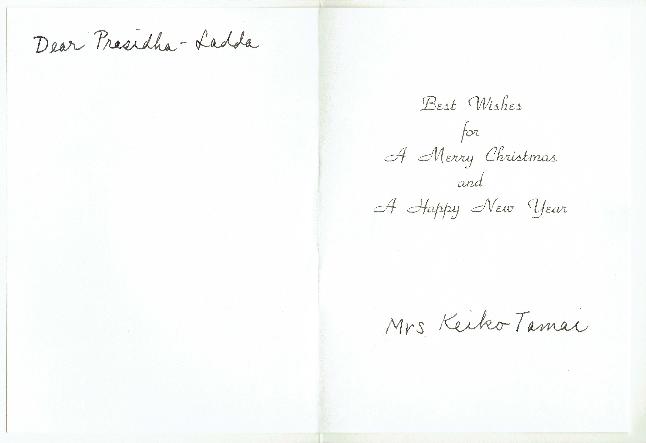 Dear Prasidha - Ladda
Best Wishes
for
A Merry Christmas
and
A Happy New Year
Mrs Keiko Tamai